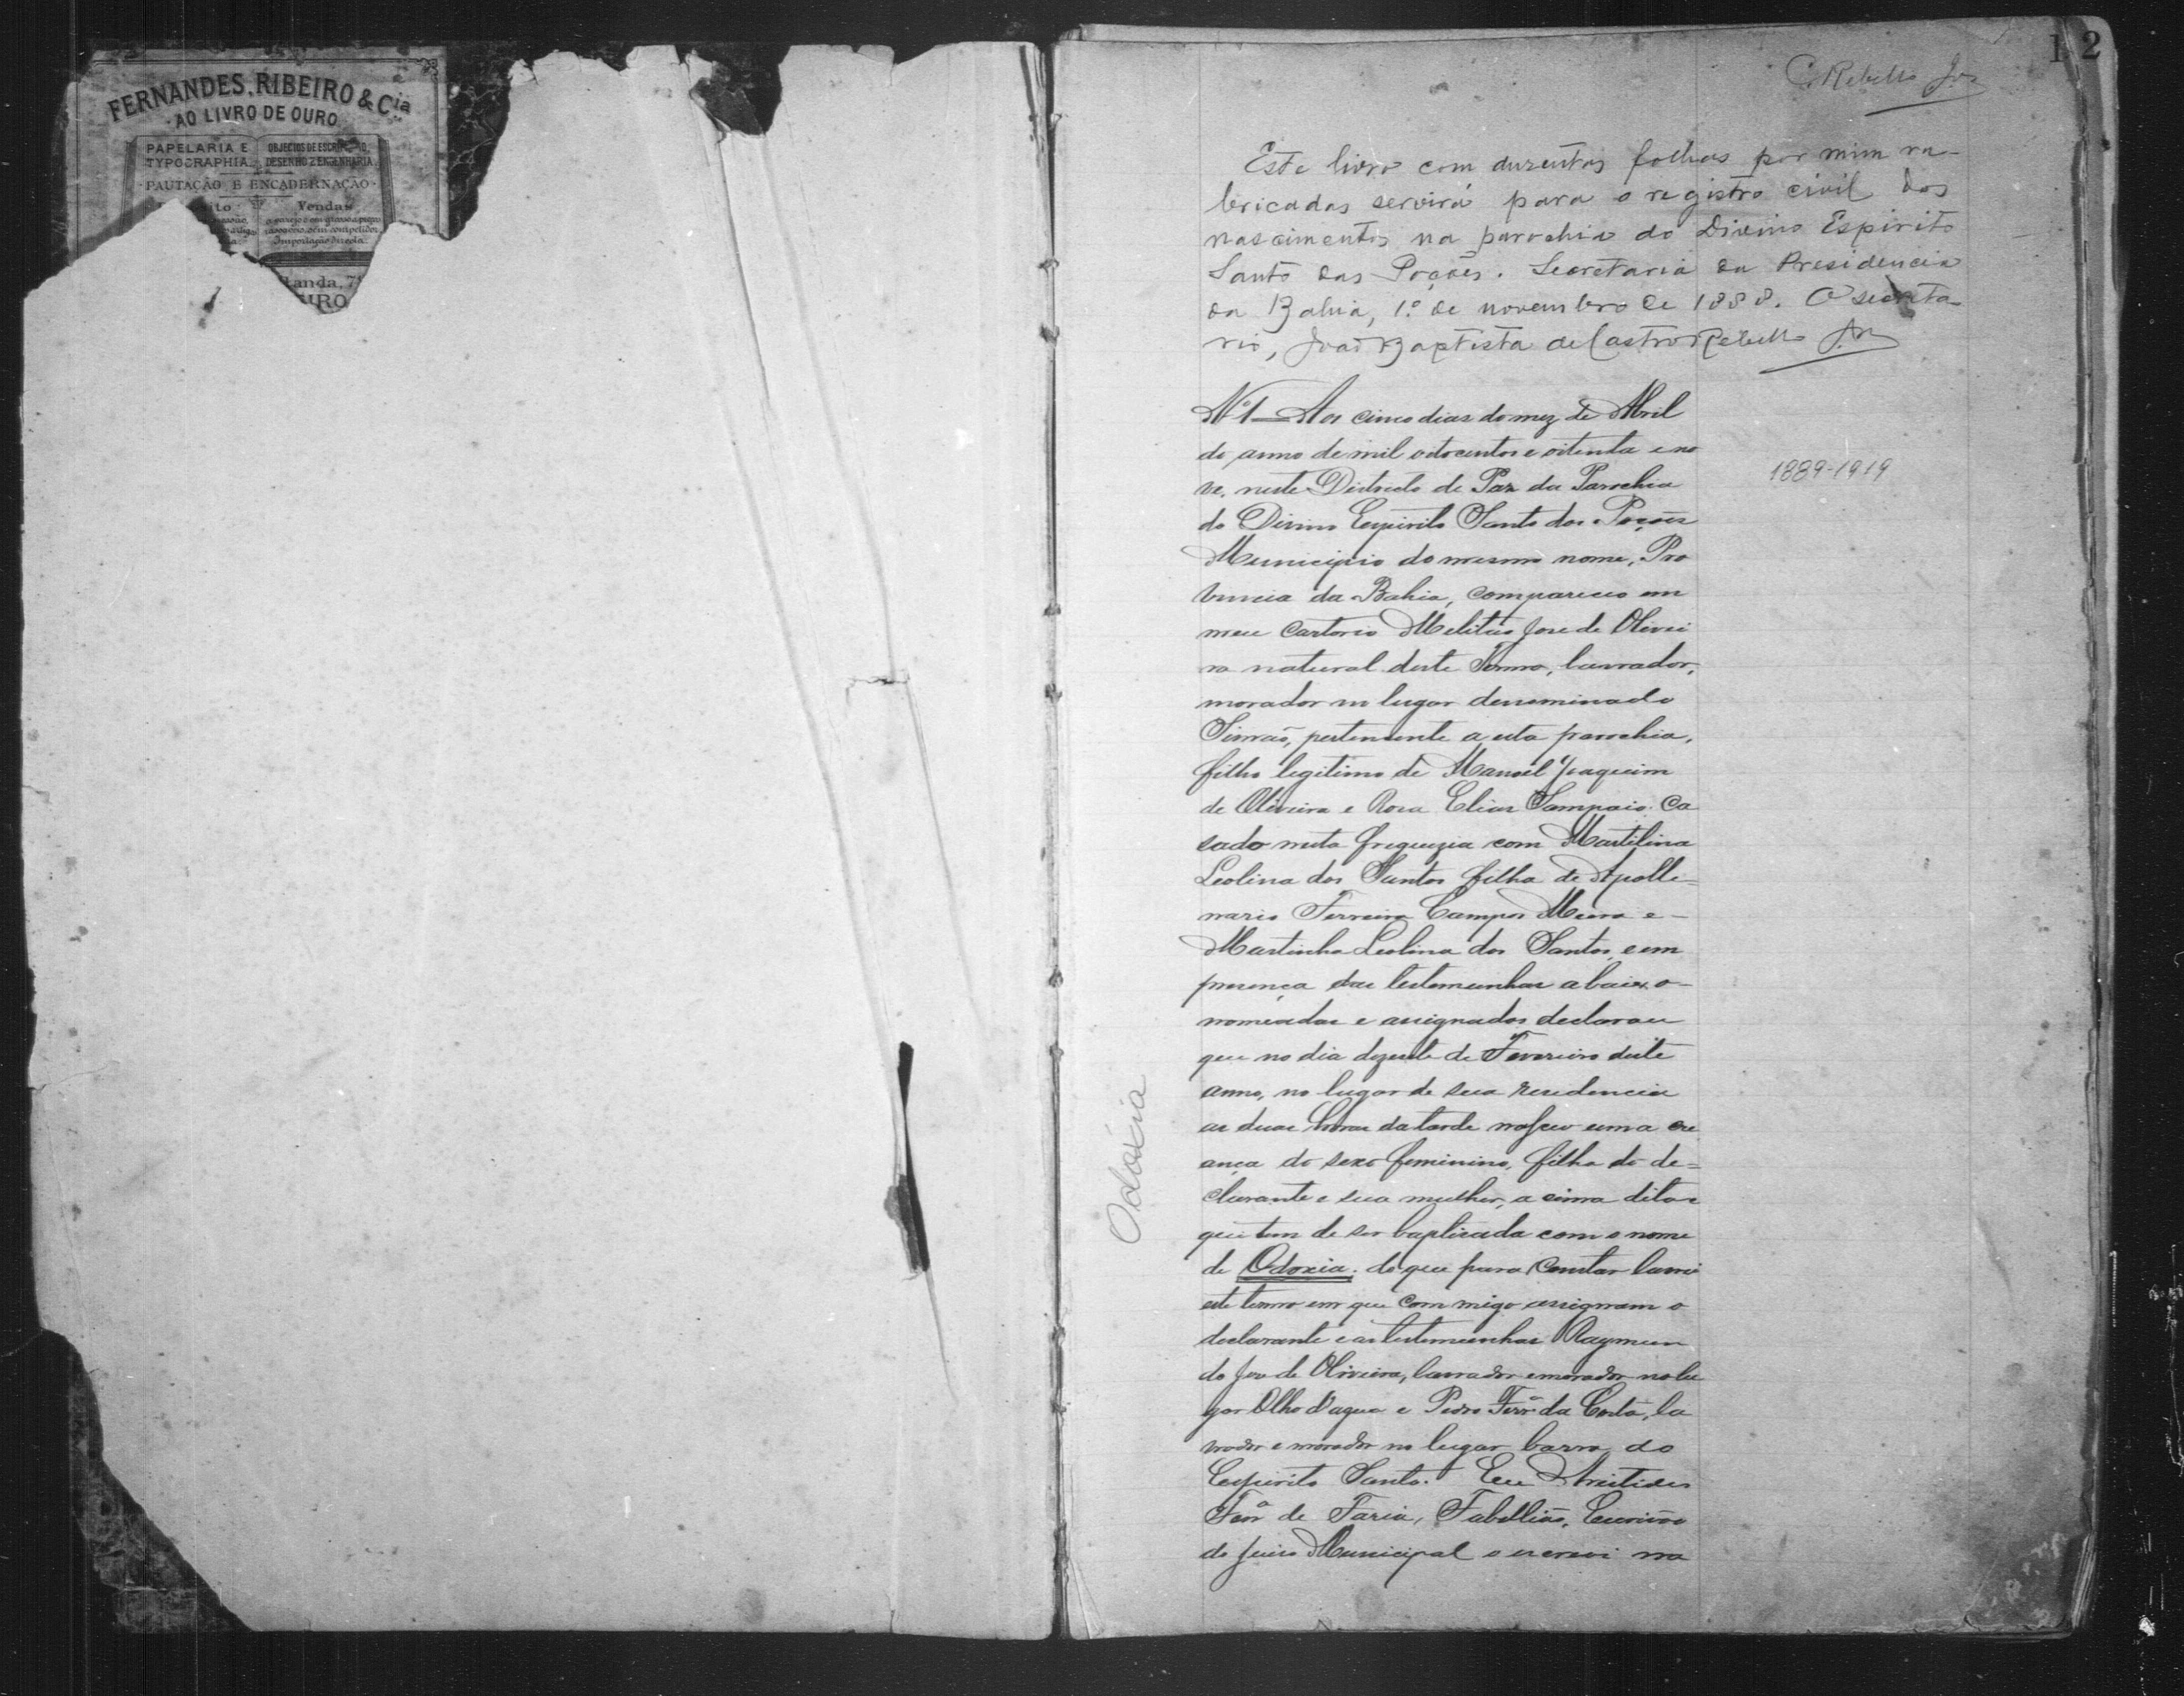 FERNANDES, RIBEIRO & Cia
AO LIVRO DE OURO
PAPELARIA E TYPOGRAPHIA
OBJECTOS DE ESCRIPTORIO, DESENHO E ENGENHARIA
PAUTAÇÃO E ENCADERNAÇÃO
Vendas
Importação Directa
tanda, 7
URO
1 2
C. Rebello Jor
Este livro com duzentas folhas por mim ru-
bricadas servirá para o registro civil dos
nascimentos na parochia do Divino Espirito
Santo dos Poções. Secretaria da Presidencia
da Bahia, 1.º de novembro de 1888. O secreta-
rio, João Baptista de Castro Rebello Jor
Nº 1 Aos cinco dias do mez de Abril
do anno de mil oitocentos e oitenta e no
ve, neste Districto de Paz da Parochia
do Divino Espirito Santo dos Poções
Municipio do mesmo nome, Pro
vincia da Bahia, compareceo em
meu Cartorio Melitão Jose de Olivei
ra natural deste Termo, lavrador,
morador no lugar denominado
Simão, pertencente a esta parochia,
filho legitimo de Manoel Joaquim
de Oliveira e Rosa Elias Sampaio. Ca
sado nesta freguezia com Martilina
Leolina dos Santos filha de Apolle=
nario Ferreira Campos Meira e -
Martinha Leolina dos Santos, e em
presença das testemunhas abaixo -
nomeadas e assignados declarou
que no dia dezesete de Fevereiro deste
anno, no lugar de sua residencia
as duas horas da tarde nasceo uma cre
ança do sexo feminino, filha do de=
clarante e sua mulher, a cima ditos
que tem de ser baptizada com o nome
de Odoxia. do que para constar lavrei
este termo em que commigo assignam o
declarante e as testemunhas Raymun
do Jose de Oliveira, lavrador e morador no lu
gar Olho d'agua e Pedro Ferrª da Costa, la
vrador e morador no lugar barra do
Espirito Santo. Eu Aristides
Ferrª de Faria, Tabellião, Escrivão
do Juiso Municipal o escrevi na
1889-1919
Odoxia